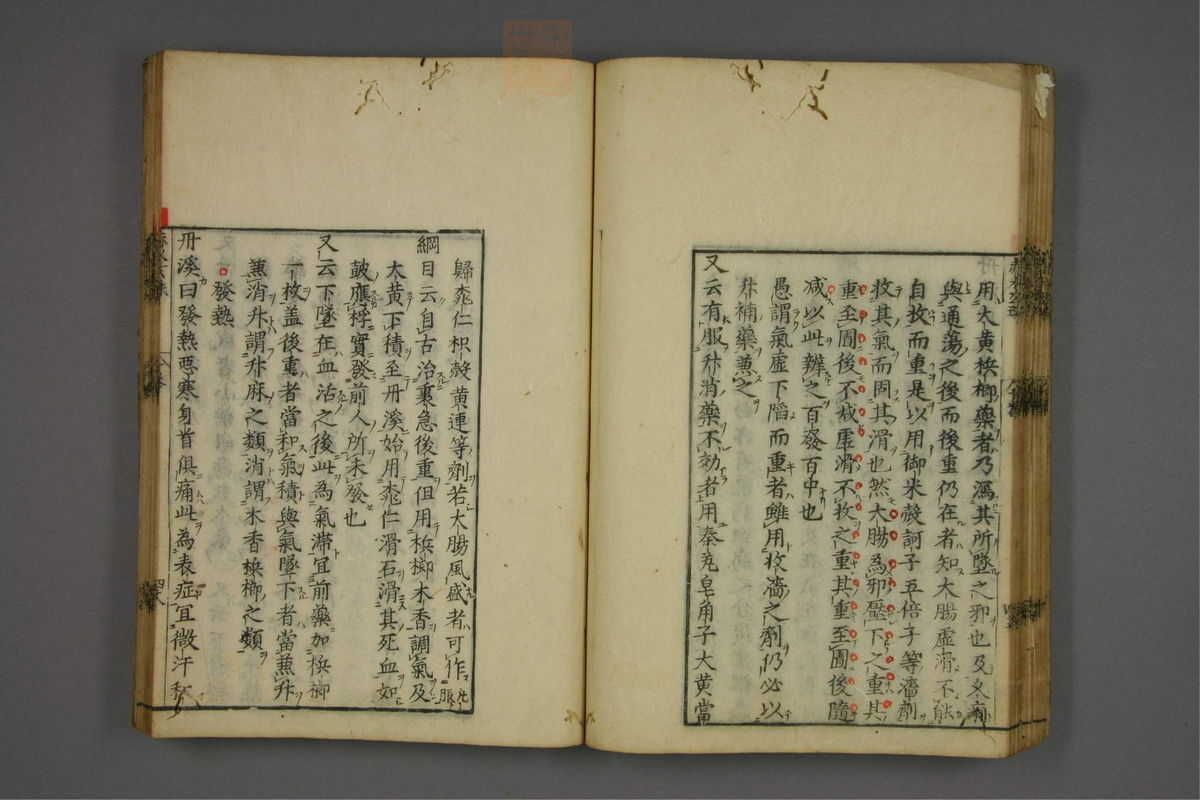 用大黄梹榔藥者乃瀉其所墜之邪也及久痢
與通蕩之後而後重仍在者知大腸虛滑不能
自收而重是以用御米殼訶子五倍子等濇劑
收其氣而固其滑也然大腸為邪壓下之重其
重至圊後不减虛滑不收之重其重至圊後隨
减以此辨之百發百中也
愚謂氣虛下陷而重者雖用收濇之劑仍必以
升補藥兼之
又云有服升消藥不効者用秦艽皂角子大黄當
歸桃仁枳殼黄連等劑若大腸風盛者可作丸服
綱目云自古治裏急後重但用梹榔木香調氣及
大黄下積至丹溪始用桃仁滑石滑其死血如
皷應桴實發前人所未發也
又云下墜在血沽之後此為氣滯宜前藥加梹榔
一枚盖後重者當和氣積與氣墜下者當兼升
兼消升謂升麻之類消謂木香梹榔之類
發熱
丹溪曰發熱惡寒身首俱痛此為表症宜微汗和